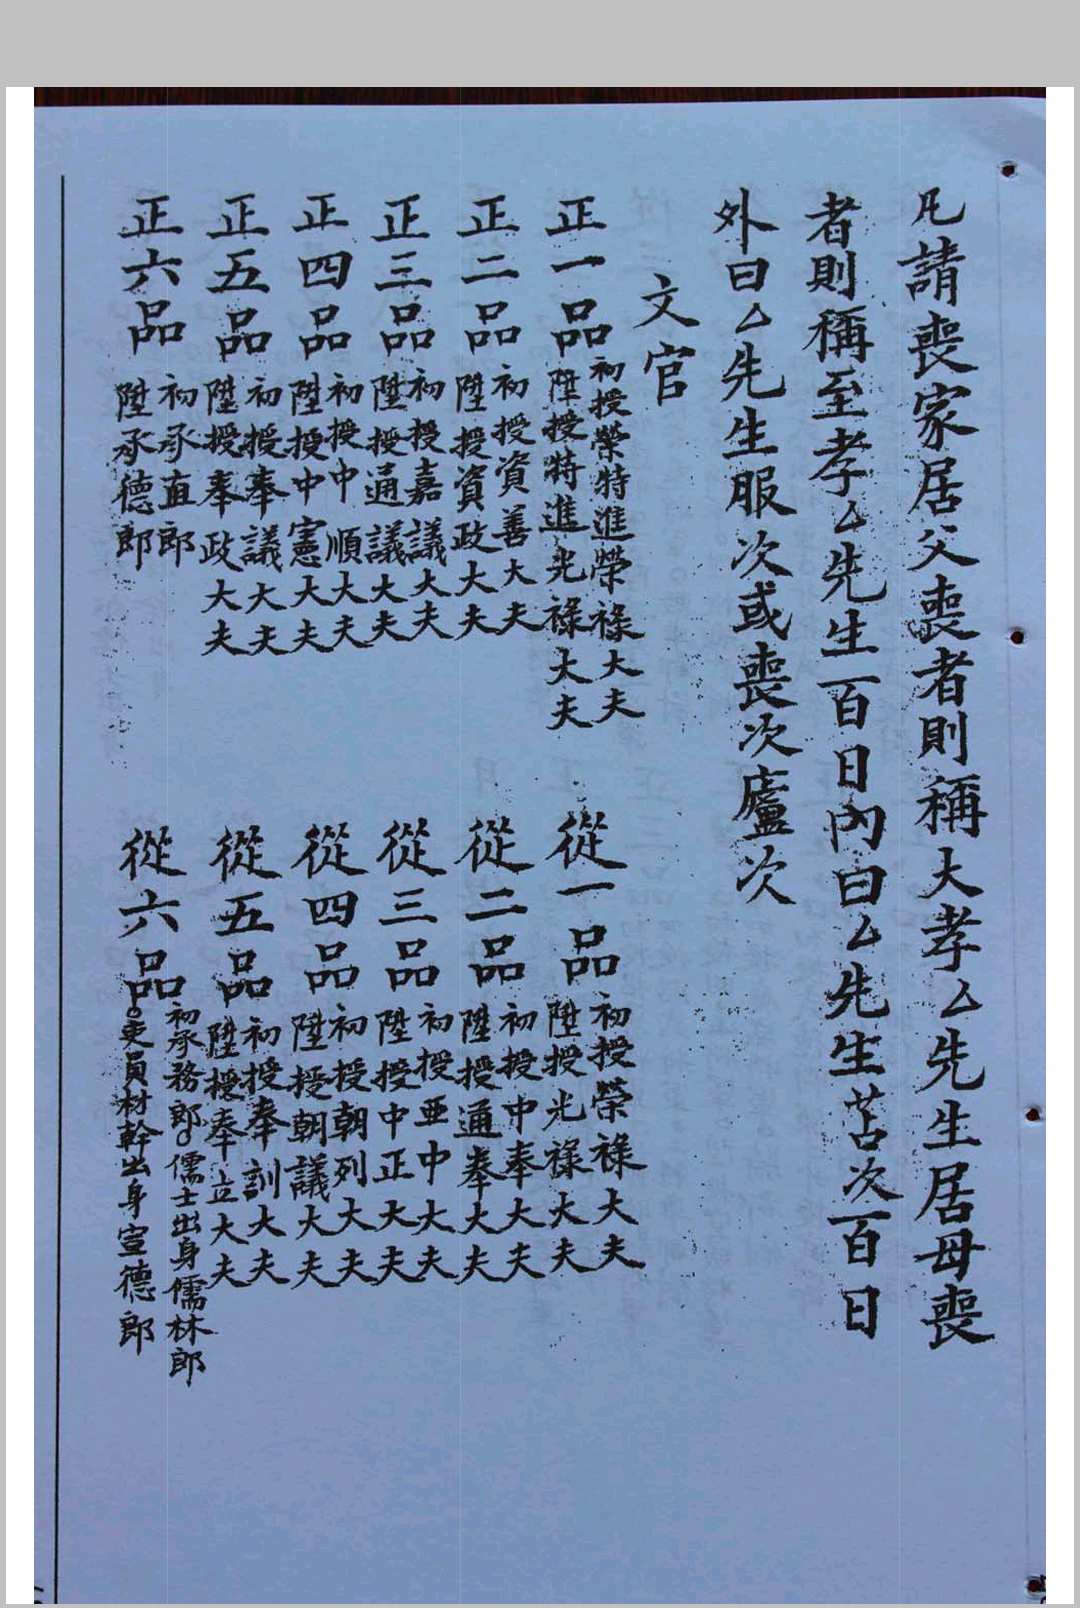 凡請喪家居父喪者則稱大孝厶先生居母喪
者則稱至孝厶先生百日內曰厶先生苫次百日
外曰厶先生服次或喪次廬次
文官
正一品 初授榮特進榮祿大夫
陞授特進光祿大夫
從一品 初授榮祿大夫
陞授光祿大夫
正二品 初授資善大夫
陞授資政大夫
從二品 初授中奉大夫
陞授通奉大夫
正三品 初授嘉議大夫
陞授通議大夫
從三品 初授亞中大夫
陞授中正大夫
正四品 初授中順大夫
陞授中憲大夫
從四品 初授朝列大夫
陞授朝議大夫
正五品 初授奉議大夫
陞授奉政大夫
從五品 初授奉訓大夫
陞授奉立大夫
正六品 初承直郎
陞承德郎
從六品 初承務郎○儒士出身儒林郎
○吏員材幹出身宣德郎